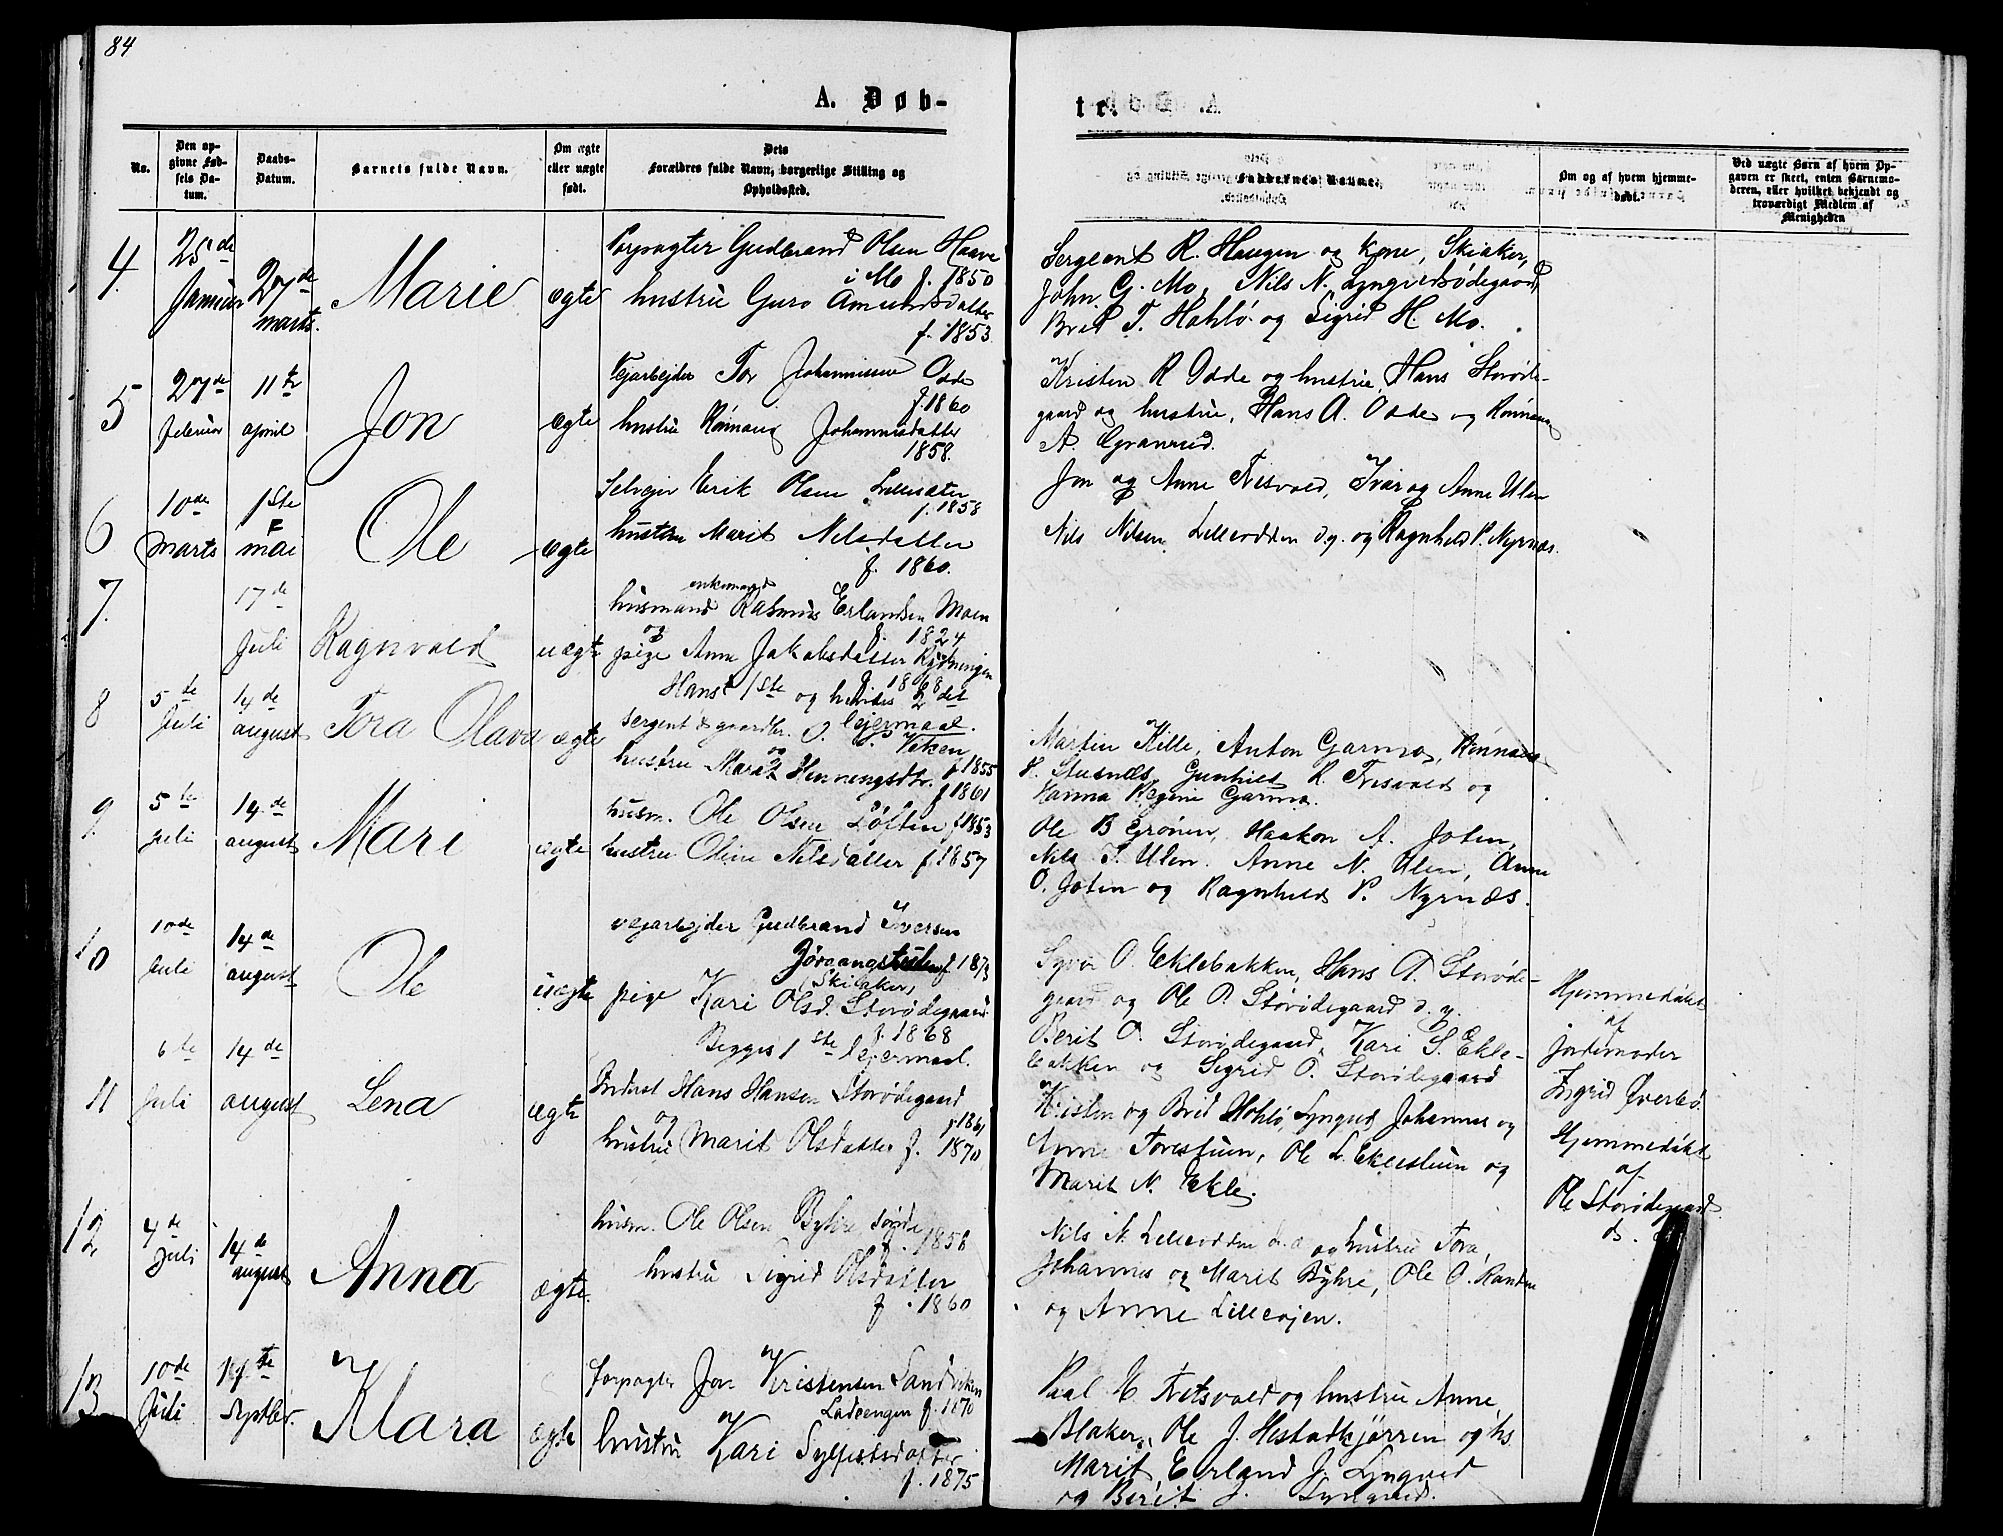 84
A. Døb-
tr.
No.
Den op-
givne Fød-
sels Da-
tum.
Daabs-
Datum.
Barnets fulde Navn.
Om ægte
eller uægte
født.
Dets
Forældres fulde Navn, borgerlige Stilling og
Opholdssted.
Faddernes Navne.
Om og af hvem hjemme-
døbt.
Ved uægte Børn af hvem Op-
gaven er skeet, enten Barnemo-
deren, eller hvilket bekjendt og
troværdigt Medlem af
Menigheden
4.
25de
Januar
27de
marts.
Marie
ægte
Forpagter Gudbrand Olsen Haave
i Mo f. 1850
hustru Guro Amundsdatter
f. 1853.
Sergeant R. Haugen og kone, Skiaker,
John G. Mo, Nils N. Lyngvedsødegaard,
Brit T. Hohlø og Sigrid H. Mo.
5
27de
februar
11te
april
Jon
ægte
Vejarbejder Tor Johannesen Odde
f. 1860
hustru Rønnaug Johannesdatter
1858.
Kristen R Odde og hustru, Hans Storøde-
gaard og hustru, Hans A. Odde og Rønnaug
A. Granrud.
6
10de
Marts
1ste
mai
Ole
ægte
Selvejer Erik Olsen Lillesæter
f. 1858
hustru Marit Nilsdatter
f. 1860.
Jon og Anne Tresvold, Ivar og Anne Ulen
Nils Nilsen Lilleodden d.y. og Ragnhild P. Nyrnæs.
7.
17de
Juli
Ragnvald
uægte
enkemand
husmand Rasmus Erlandsen Moen
og f. 1824
pige Anne Jakobsdatter Rydningen
f. 1868
Hans 1ste og hendes 2det
lejermaal.
8
5te
Juli
14de
august
Tora Olava
ægte
Sergent & gaardbr. O. P. Viken
og f 1855
hustru Marit Henningsdtr.
f 1861
Martin Kille, Anton Garmo, Rønnaug
H. Stusnæs, Gunhild R. Tresvold og
Hanna Regine Garmo.
9
5te
juli
14.de
august
Mari
ægte
husm. Ole Olsen Løften f 1853
hustru Oline Nilsdatter f. 1857
Ole B Grønen, Haakon A. Joten,
Nils T. Ulen. Anne N. Ulen, Anne
O. Joten og Ragnhild P. Nyrnæs.
10
10de
Juli
14de
august
Ole
uægte
vejarbejder Gudbrand Iversen
f 1873
(Skiaker)
pige Kari Olsd. Storødegaard
f. 1868
Begges 1ste lejermaal.
Syver O. Eklebakken, Hans O. Storøde-
gaard og Ole O. Storødegaard d. y.
Berit O. Storødegaard, Kari S. Ekle-
bakken og Sigrid O. Storødegaard
Hjemmedøbt
af
jordemoder
Ingrid Øverbø.
11
6te
Juli
14de
august
Lena
ægte
Inderst Hans Hansen Storødegaard
og f 1861
hustru Marit Olsdatter f. 1870
Kristen og Brit Hohlø, Lyngved Johannes og
Anne Forestuen, Ole L. Eklestuen og
Marit N. Ekle.
Hjemmedøbt
af
Ole Storødegaard
12
4de
Juli
14de
august
Anna
ægte.
husm. Ole Olsen Byhre
f. 1858
hustru Sigrid Olsdatter
f. 1860
Nils N. Lilleodden og hustru Tora,
Johannes og Marit Byhre, Ole O. Randen
og Anne Lilleøjen.
13
10de
Juli
Septbr.
Klara
ægte
forpagter Jon Kristensen Sandviken
Ladeengen f. 1870
hustru Kari Sylfestsdatter
f. 1875
Paal E. Tresvold og hustru Anne,
Blaker, Ole J. Hestadkjørren og hs.
Marit, Erland J. Lyngved
og Berit J. Lyngved.